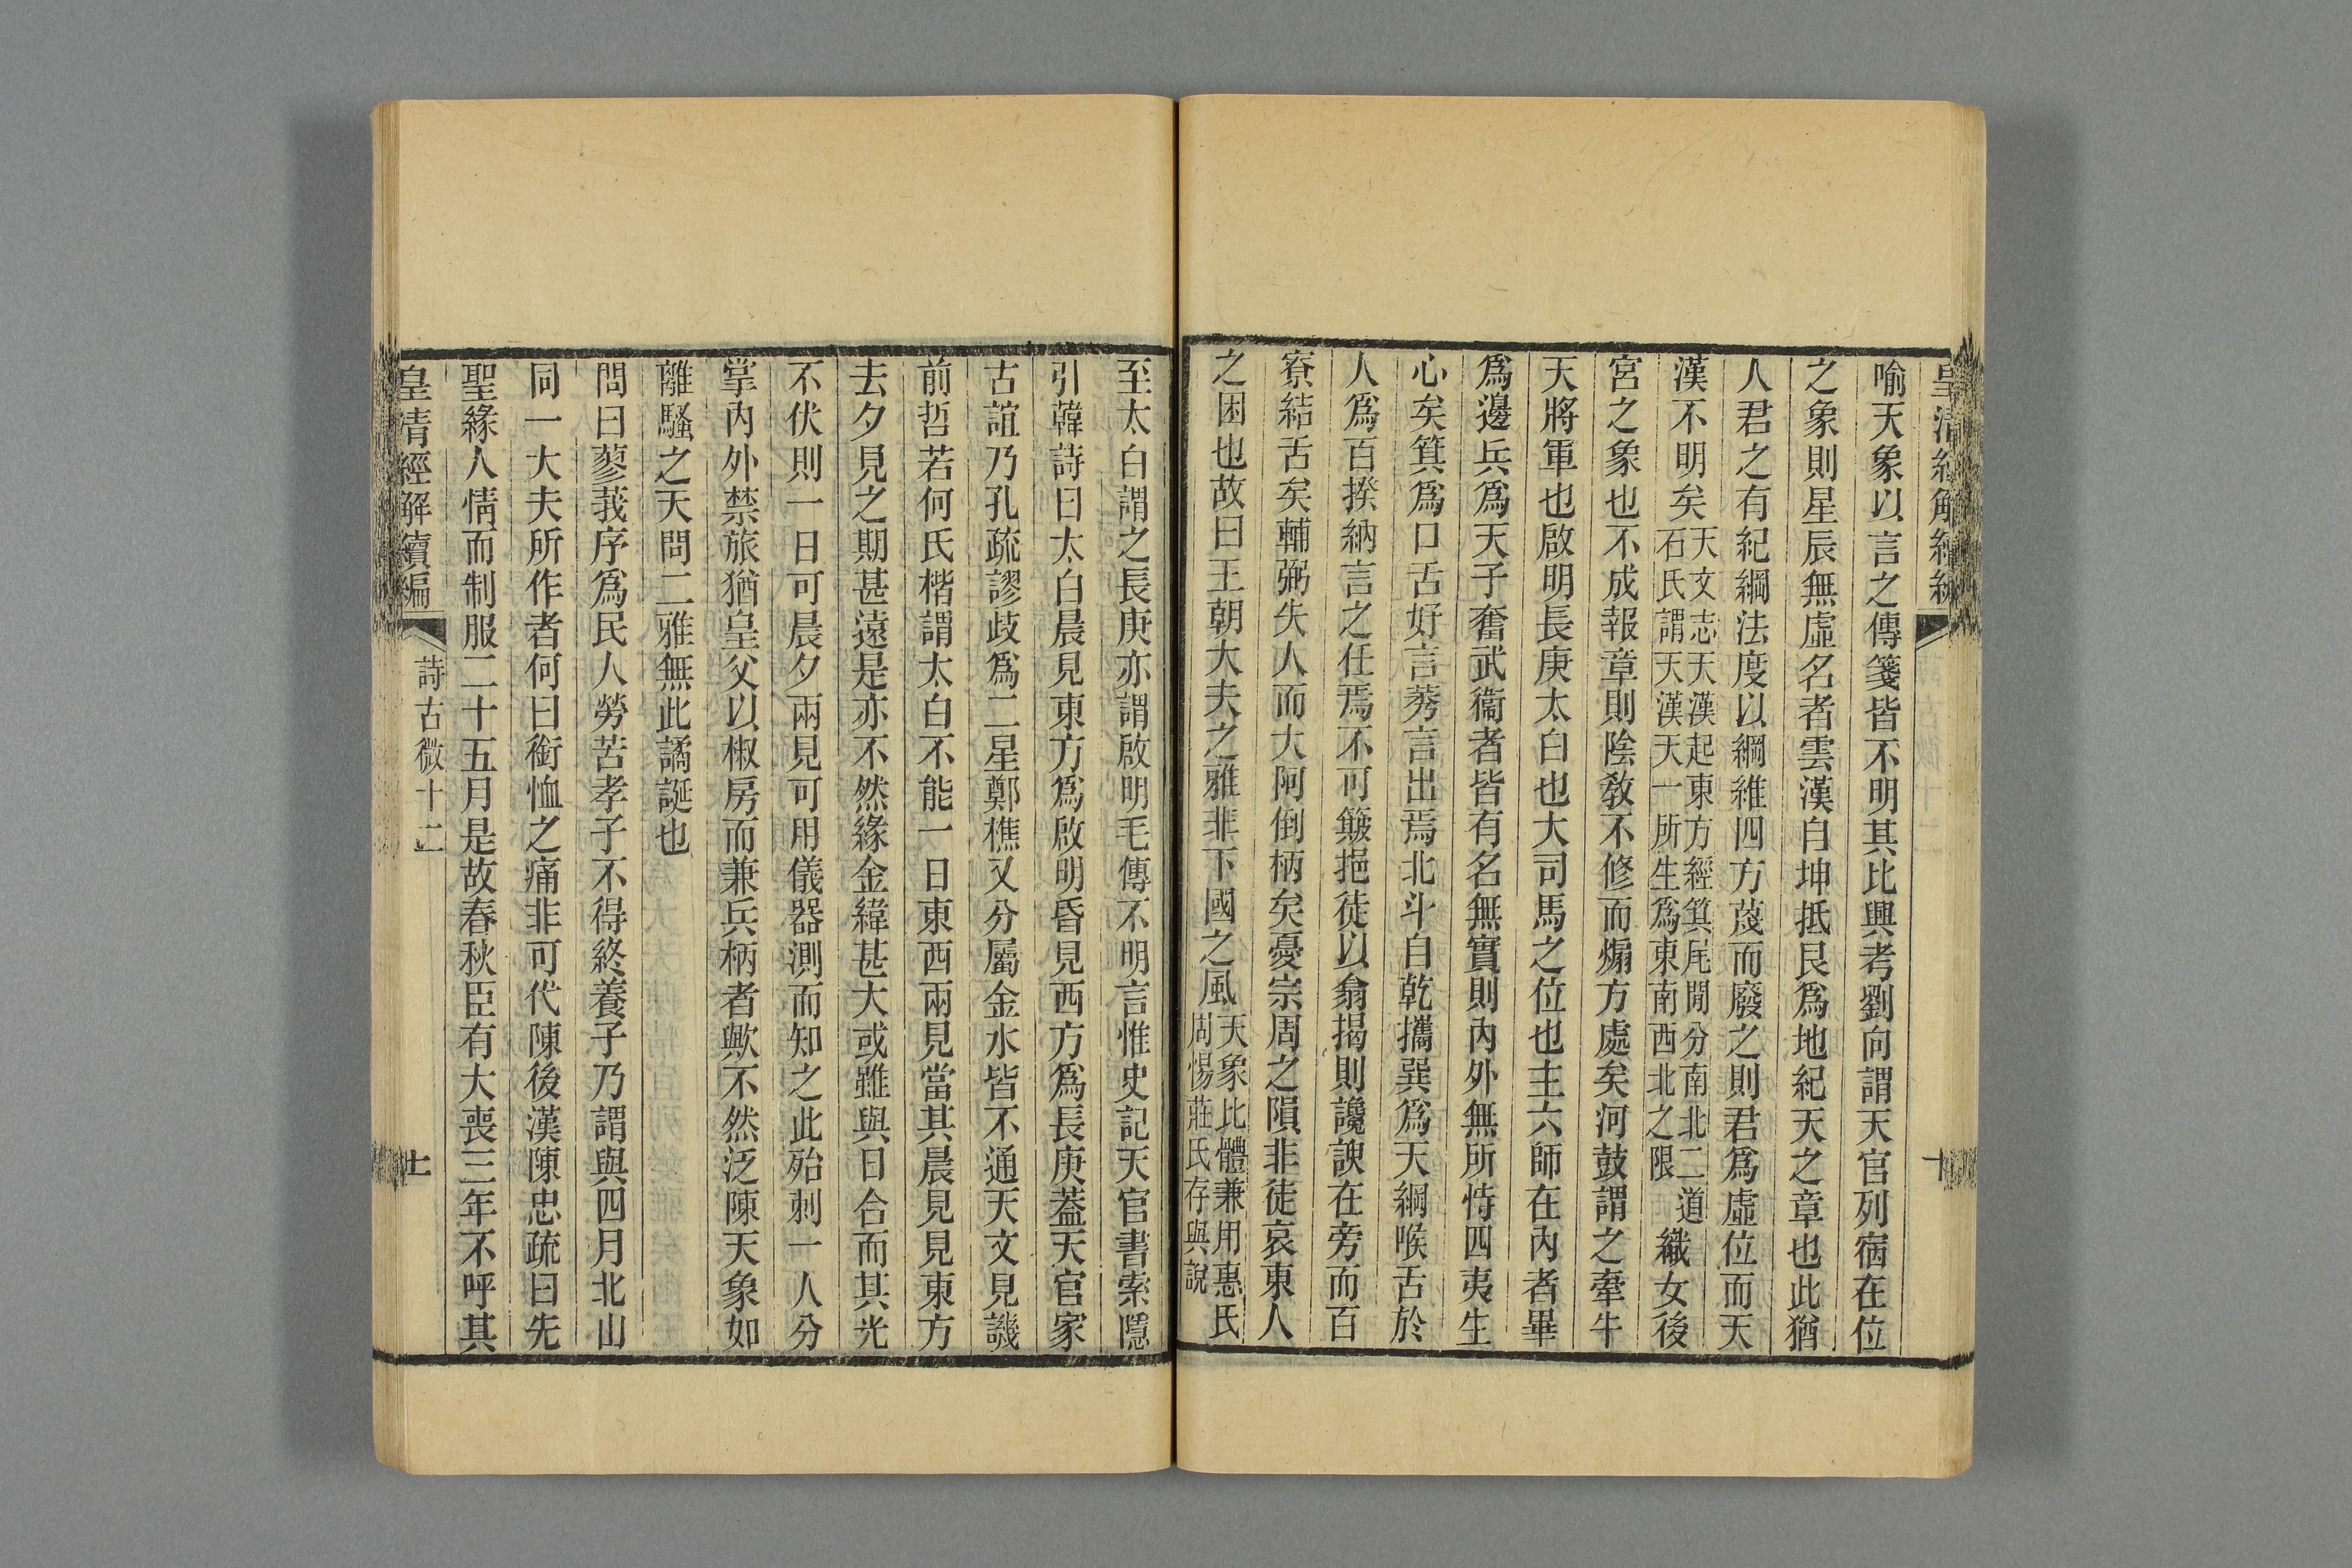 皇清經解續編
十
喻天象以言之傳箋皆不明其比興考劉向謂天官列宿在位
之象則星辰無虛名者雲漢自坤抵艮爲地紀天之章也此猶
人君之有紀綱法度以綱維四方蔑而廢之則君爲虛位而天
漢不明矣天文志天漢起東方經箕尾閒分南北二道石氏謂天漢天一所生爲東南西北之限織女後
宮之象也不成報章則陰敎不修而煽方處矣河鼓謂之牽牛
天將軍也啟明長庚太白也大司馬之位也主六師在內者畢
爲邊兵爲天子奮武衞者皆有名無實則內外無所恃四夷生
心矣箕爲口舌好言莠言出焉北斗自乾攜巽爲天綱喉舌於
人爲百揆納言之任焉不可簸挹徒以翕揭則讒諛在旁而百
寮結舌矣輔弼失人而大阿倒柄矣憂宗周之隕非徒哀東人
之困也故曰王朝大夫之雅非下國之風天象比體兼用惠氏周惕莊氏存與說
至太白謂之長庚亦謂啟明毛傳不明言惟史記天官書索隱
引韓詩曰太白晨見東方爲啟明昏見西方爲長庚蓋天官家
古誼乃孔疏謬歧爲二星鄭樵又分屬金水皆不通天文見譏
前哲若何氏楷謂太白不能一日東西兩見當其晨見見東方
去夕見之期甚遠是亦不然緣金緯甚大或雖與日合而其光
不伏則一日可晨夕兩見可用儀器測而知之此殆刺一人分
掌內外禁旅猶皇父以椒房而兼兵柄者歟不然泛陳天象如
離騷之天問二雅無此譎誕也
問曰蓼莪序爲民人勞苦孝子不得終養子乃謂與四月北山
同一大夫所作者何曰銜恤之痛非可代陳後漢陳忠疏曰先
聖緣人情而制服二十五月是故春秋臣有大喪三年不呼其
皇清經解續編
詩古微十二
十一